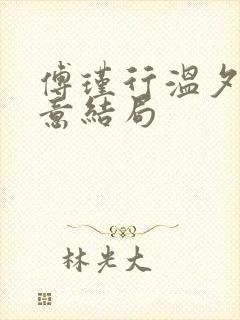 傅瑾行溫夕
意結局
林光大